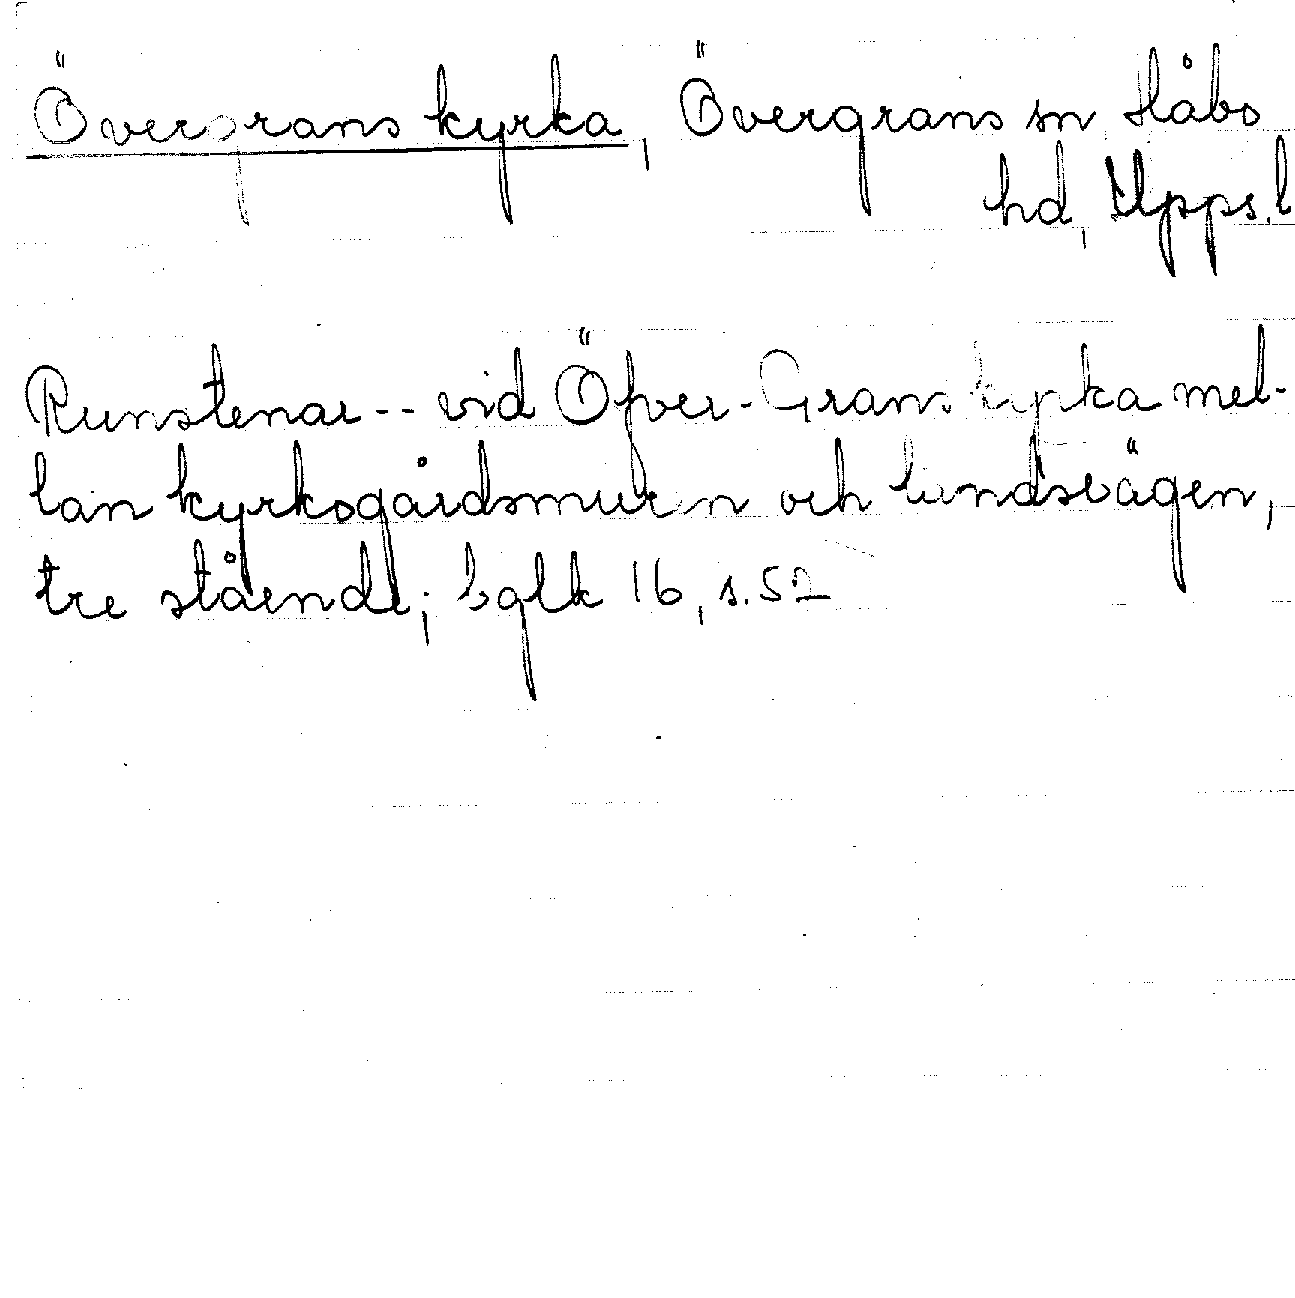 Övergrans kyrka, Övergrans sn Håbo
hd, Upps. l
Runstenar -- vid Öfver-Grans kyrka mel-
lan kyrkogårdsmuren och landsvägen,
tre stående; bqlk 16, s. 52